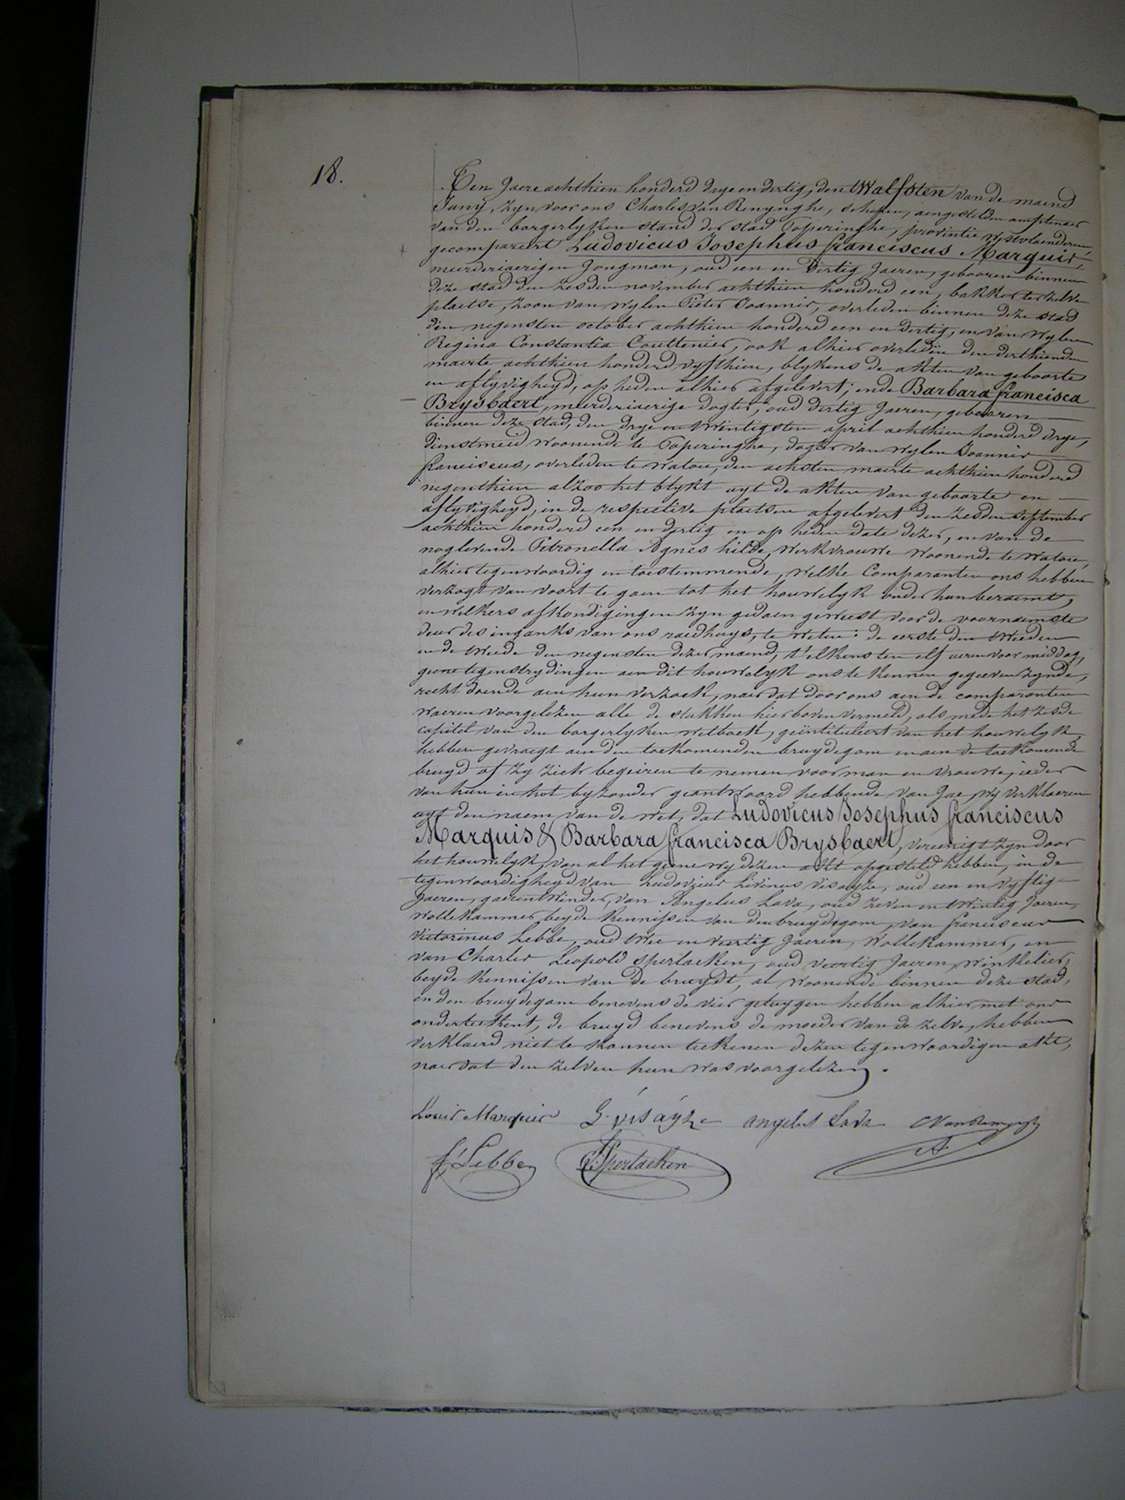 18.
Ten Jaere achthien honderd drye en dertig, den twalfsten van de maend
Juny, zyn voor ons Charles Van Renynghe, schepen, aengestelden amptenaer
van den borgerlyken stand der stad Poperinghe, provintie westvlaenderen
gecompareert Ludovicus Josephus franciscus Marquis,
meerderjaerigen Jongman, oud een en dertig Jaeren, gebooren binnen
deze stad den zesden november achthien honderd een, bakker ter zelve
plaetse, zoon van wylen Pieter Joannis, overleden binnen deze stad
den negensten october achthien honderd een en dertig, en van wylen
Regina Constantia Couttenier, ook alhier overleden den derthienden
maerte achthien honderd vyfthien, blykens de akten van geboorte
en aflyvigheyd, op heden alhier afgelevert; ende Barbara francisca
Brysbaert, meerderjaerige dogter, oud dertig Jaeren, gebooren
binnen deze stad, den drye en twintigsten april achthien honderd drye,
dienstmeid woonende te Poperinghe, dogter van wylen Joannis
franciscus, overleden te watou, den achsten maerte achthien honderd
negenthien alzoo het blykt uyt de akten van geboorte en
aflyvigheyd, in de respective plaetsen afgelevert den zesden september
achthien honderd een en dertig en op heden date dezer, en van de
noglevende Petronella Agnes hilde, werkvrouwe woonende te watou,
alhier tegenwoordig en toestemmende, welke Comparanten ons hebben
verzogt van voort te gaen tot het houwelyk onder hun beraemt,
en welkers afkondigingen zyn gedaen geweest voor de voornaemste
deur des inganks van ons raedhuys, te weten: de eerste den tweeden
en de tweede den negensten dezer maend, t'elkens ten elf ueren voor middag,
geene tegenstrydingen aen dit houwelyk ons te kennen gegeeven zynde,
recht doende aen hun verzoek, naer dat door ons aen de comparanten
waeren voorgelezen alle de stukken hier boven vermeld, als mede het zesde
capittel van den borgerlyken wetboek, geintituleert van het houwelyk,
hebben gevraegt aen den toekomenden bruydegom en aen de toekomende
bruyd of zy zich begeiren te nemen voor man en vrouwe, ieder
van hun in het byzonder geantwoord hebbende van Jae, wy verklaeren
uyt den naem van de wet, dat Ludovicus Josephus franciscus
Marquis & Barbara francisca Brysbaert, vereenigt zyn door
het houwelyk, van al het geene wy dezen akt opgesteld hebben, in de
tegenwoordigheyd van Ludovicus Livinus Visaeye, oud een en vyftig
Jaeren, gaerentwinder, van Angelus Lava, oud zeven en twintig Jaeren,
wollekammer, beyde kennissen van den bruydegom, van franciscus
Victorinus Lebbe, oud twee en veertig Jaeren, wollekammer, en
van Charles Leopold Sperlaeken, oud veertig Jaeren, winkelier,
beyde kennissen van de bruydt, al woonende binnen deze stad,
en den bruydegom benevens de vier getuygen hebben alhier met ons
onderteekent, de bruyd benevens de moeder van de zelve, hebben
verklaerd niet te konnen teekenen dezen tegenwoordigen akte,
naer dat den zelven hun was voorgelezen.
Louis Marquis Angelus Lava C Van Renynghe
f' Lebbe Sperlaeken